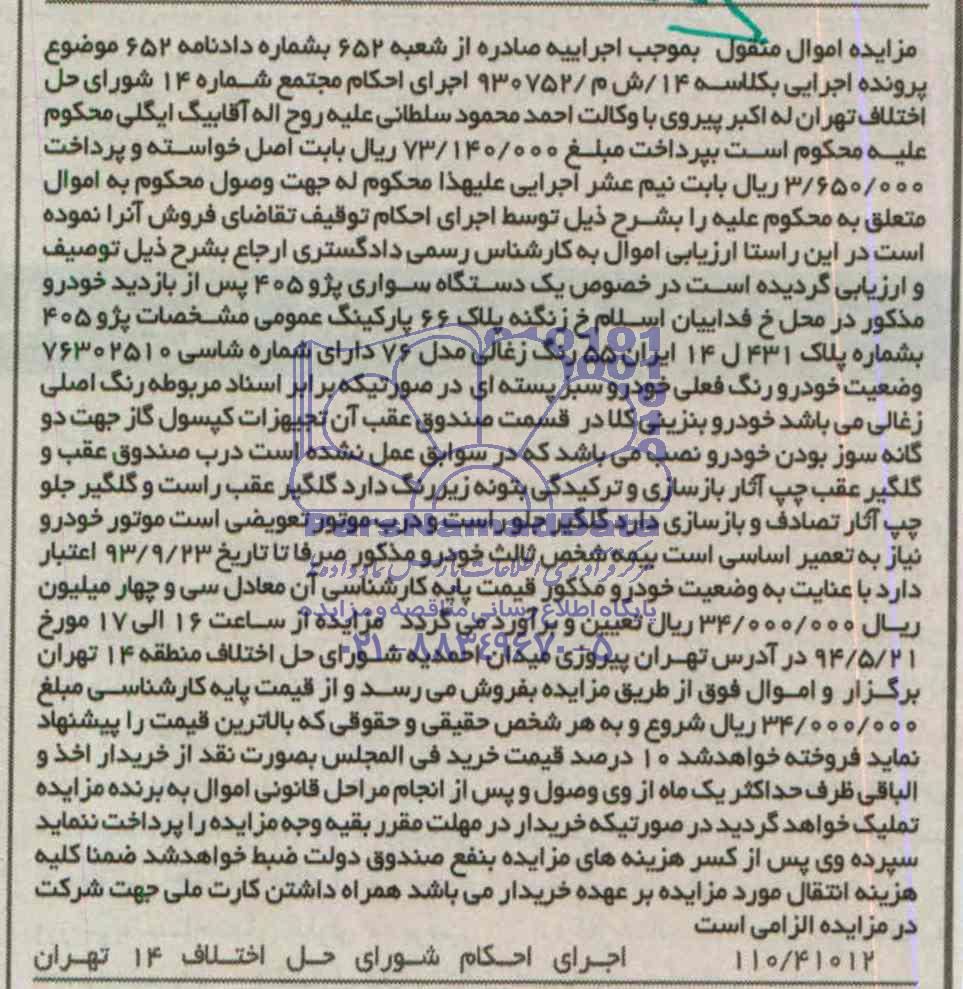 مزایده اموال منقول بموجب اجراییه صادره از شعبه ۶۵۲ بشماره دادنامه ۶۵۲ موضوع
پرونده اجرایی بکلاسه ۱۴/ش م/۹۳۰۷۵۲ اجرای احکام مجتمع شماره ۱۴ شورای حل
اختلاف تهران له اکبر پیروی با وکالت احمد محمود سلطانی علیه روح اله آقابیگ ایگلی محکوم
علیه محکوم است بپرداخت مبلغ ۷۳/۱۴۰/۰۰۰ ریال بابت اصل خواسته و پرداخت
۳/۶۵۰/۰۰۰ ریال بابت نیم عشر اجرایی علیهذا محکوم له جهت وصول محکوم به اموال
متعلق به محکوم علیه را بشرح ذیل توسط اجرای احکام توقیف تقاضای فروش آنرا نموده
است در این راستا ارزیابی اموال به کارشناس رسمی دادگستری ارجاع بشرح ذیل توصیف
و ارزیابی گردیده است در خصوص یک دستگاه سواری پژو ۴۰۵ پس از بازدید خودرو
مذکور در محل خ فداییان اسلام خ زنگنه پلاک ۶۶ پارکینگ عمومی مشخصات پژو ۴۰۵
بشماره پلاک ۴۳۱ ل ۱۴ ایران ۵۵ رنگ زغالی مدل ۷۶ دارای شماره شاسی ۷۶۳۰۲۵۱۰
وضعیت خودرو رنگ فعلی خودرو سبز پسته ای در صورتیکه برابر اسناد مربوطه رنگ اصلی
زغالی می باشد خودرو بنزینی کلا در قسمت صندوق عقب آن تجهیزات کپسول گاز جهت دو
گانه سوز بودن خودرو نصب می باشد که در سوابق عمل نشده است درب صندوق عقب و
گلگیر عقب چپ آثار بازسازی و ترکیدگی بتونه زیررنگ دارد گلگیر عقب راست و گلگیر جلو
چپ آثار تصادف و بازسازی دارد گلگیر جلو راست و درب موتور تعویضی است موتور خودرو
نیاز به تعمیر اساسی است بیمه شخص ثالث خودرو مذکور صرفا تا تاریخ ۹۳/۹/۲۳ اعتبار
دارد با عنایت به وضعیت خودرو مذکور قیمت پایه کارشناسی آن معادل سی و چهار میلیون
ریال ۳۴/۰۰۰/۰۰۰ ریال تعیین و برآورد می گردد مزایده از ساعت ۱۶ الی ۱۷ مورخ
۹۴/۵/۲۱ در آدرس تهران پیروزی میدان احمدیه شورای حل اختلاف منطقه ۱۴ تهران
برگزار و اموال فوق از طریق مزایده بفروش می رسد و از قیمت پایه کارشناسی مبلغ
۳۴/۰۰۰/۰۰۰ ریال شروع و به هر شخص حقیقی و حقوقی که بالاترین قیمت را پیشنهاد
نماید فروخته خواهدشد ۱۰ درصد قیمت خرید فی المجلس بصورت نقد از خریدار اخذ و
الباقی ظرف حداکثر یک ماه از وی وصول و پس از انجام مراحل قانونی اموال به برنده مزایده
تملیک خواهد گردید در صورتیکه خریدار در مهلت مقرر بقیه وجه مزایده را پرداخت ننماید
سپرده وی پس از کسر هزینه های مزایده بنفع صندوق دولت ضبط خواهدشد ضمنا کلیه
هزینه انتقال مورد مزایده بر عهده خریدار می باشد همراه داشتن کارت ملی جهت شرکت
در مزایده الزامی است
۱۱۰/۴۱۰۱۲ اجرای احکام شورای حل اختلاف ۱۴ تهران
ParsNamadData
پایگاه اطلاع رسانی مناقصه و مزایده
۰۲۱-۸۸۳۴۹۶۷۰-۵